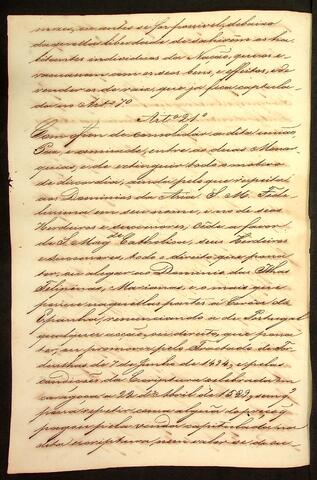 mais, ou antes se for possivel, debaixo
daquella liberdade de deixarem os ha-
bitantes individuos da Nação, que os e-
vacuarem com os seus bens, e effeitos, e de
venderem os de raiz que já fica capitula-
do no Art.º 7º
Art.º 21º
Com o fim de consolidar a dita união,
Paz e amizade, entre as duas Monar-
quias, e de extinguir todo o motivo
de discordia, ainda pelo que respeita
aos Dominios da Asia: S. M. Fide-
lissima em seu nome, e no de seus
Herdeiros e successores, cede a favor
de S. Mag. Catholica, seus Herdeiros
e successores, todo o direito que possa
ter, ou alegar ao Dominio das Ilhas
Felipinas, Marianas, e o mais que
possue naquellas partes a Coroa de
Espanha, renunciando a de Portugal
qualquer acção, ou direito, que possa
ter, ou promover pelo Tratado de Tor-
desilhas de 7 de Junho de 1494, e pelas
condições da Escriptura celebrada em
Saragoça a 22 de Abril de 1529, sem q.
possa repetir cousa alguma do preço q.
pagou pela venda capitulada na
dita escriptura, nem valer-se de ou-